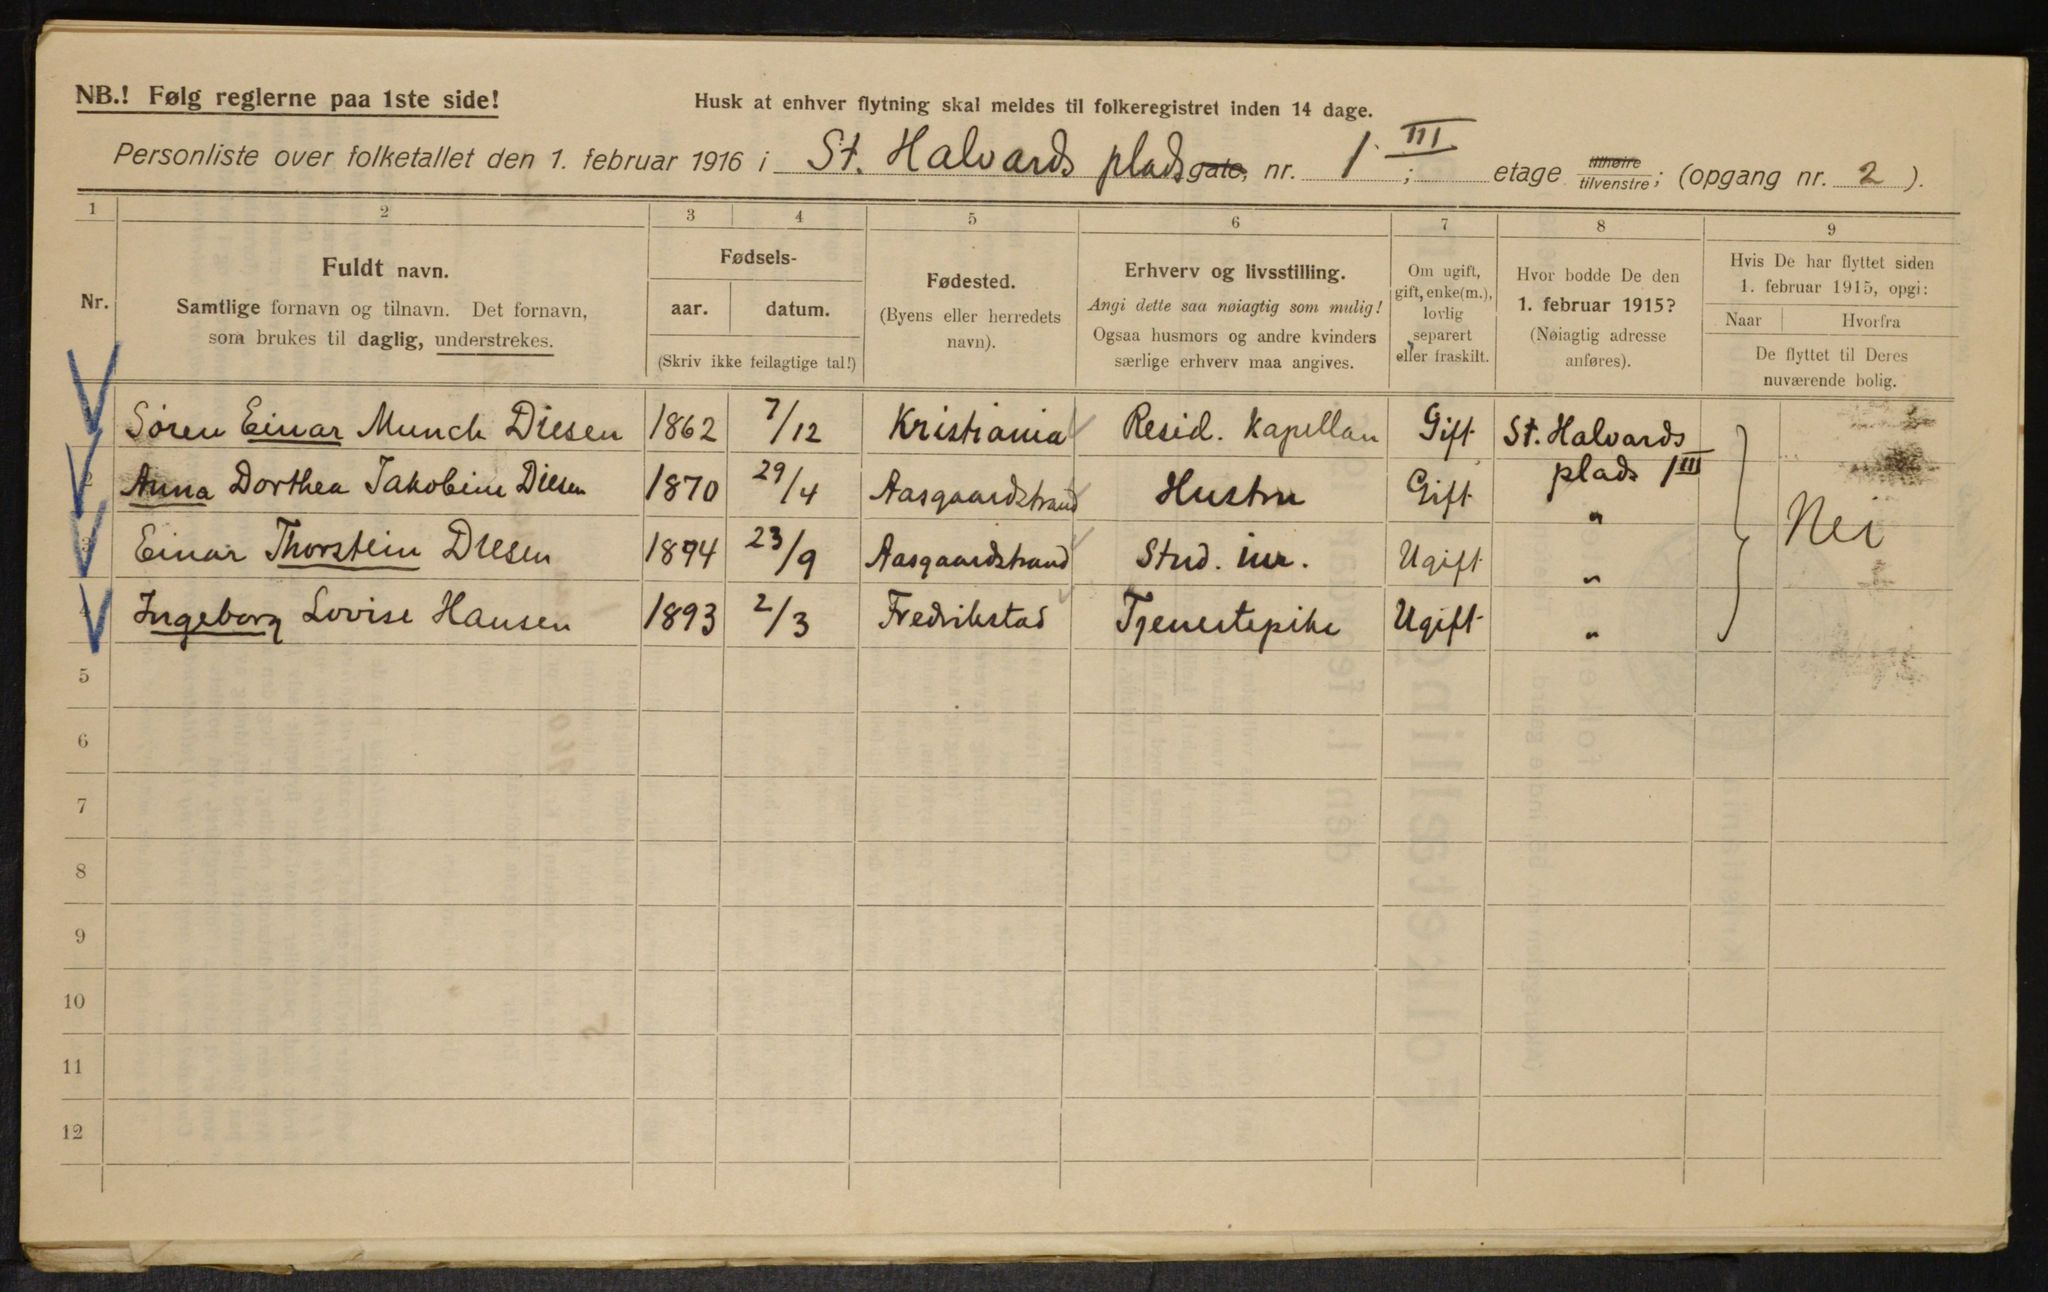 NB.! Følg reglerne paa 1ste side!
Husk at enhver flytning skal meldes til folkeregistret inden 14 dage.
Personliste over folketallet den 1. februar 1916 i St. Halvards plads gate, nr. 1 ; III etage tilhøire tilvenstre; (opgang nr. 2 ).
1 2 3 4 5 6 7 8 9
Nr.
Fuldt navn.
Samtlige fornavn og tilnavn. Det fornavn,
som brukes til daglig, understrekes.
Fødsels-
aar. datum.
(Skriv ikke feilagtige tal!)
Fødested.
(Byens eller herredets
navn).
Erhverv og livsstilling.
Angi dette saa nøiagtig som mulig!
Ogsaa husmors og andre kvinders
særlige erhverv maa angives.
Om ugift,
gift, enke(m.),
lovlig
separert
eller fraskilt.
Hvor bodde De den
1. februar 1915?
(Nøiagtig adresse
anføres).
Hvis De har flyttet siden
1. februar 1915, opgi:
Naar Hvorfra
De flyttet til Deres
nuværende bolig.
Søren Einar Munch Diesen 1862 7/12 Kristiania Resid. Kapellan Gift St. Halvards
plads 1 III
Anna Dorthea Jakobine Diesen 1870 29/4 Aasgaardstrand Hustru Gift "
Einar Thorstein Diesen 1894 23/9 Aasgaardstrand Stud. jur. Ugift " Nei
Ingeborg Lovise Hansen 1893 2/3 Fredrikstad Tjenestepike Ugift "
5
6
7
8
9
10
11
12